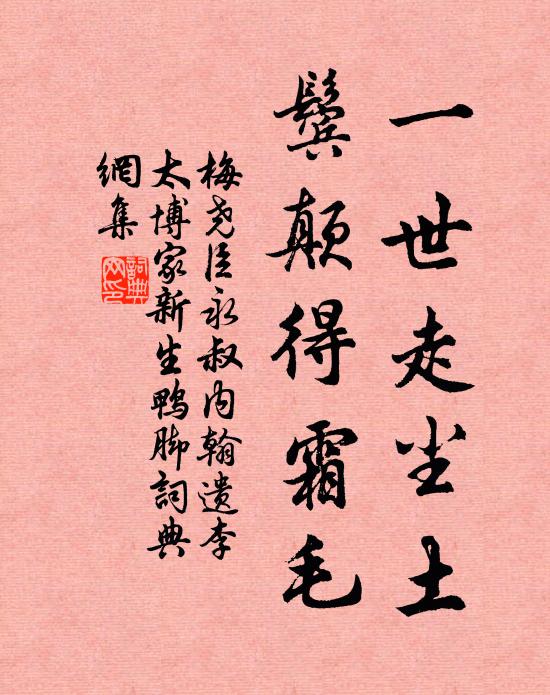 一世走尘土
鬓颠得霜毛
梅尧臣永叔内翰遗李
太博家新生鸭脚詞典
網集
詞典網印